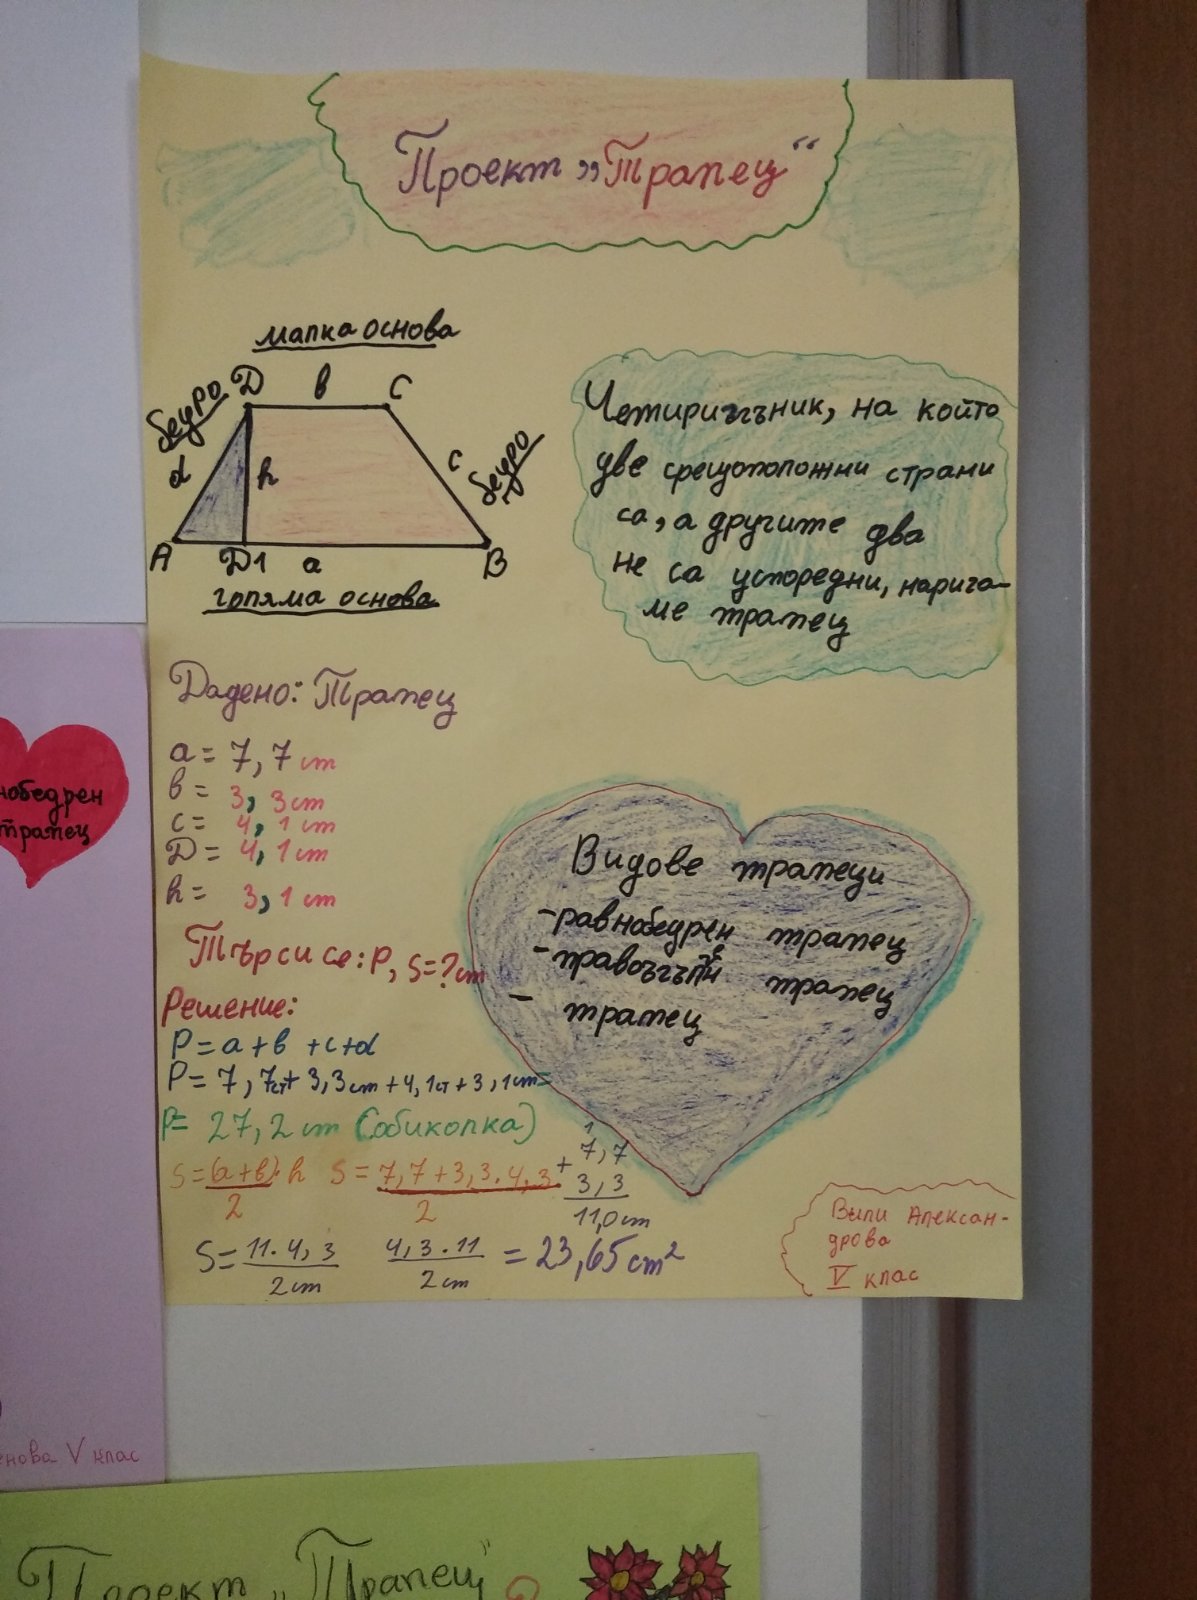 Проект „Трапец“
малка основа
бедро
D
b
C
d
h
c
бедро
A
D1
a
B
голяма основа
Четириъгъник, на който
две срещоположни страни
са, а другите два
не са успоредни, нарича-
ме трапец
Дадено: Трапец
a = 7,7 cm
b = 3,3 cm
c = 4,1 cm
D = 4,1 cm
h = 3,1 cm
Търси се: P, S=? cm
Решение:
P = a + b + c + d
P = 7,7cm + 3,3cm + 4,1cm + 3,1cm =
P = 27,2 cm (обиколка)
S = (a+b).h / 2 S = 7,7 + 3,3 . 4,3 / 2
1
+ 7,7
3,3
11,0 cm
S = 11 . 4,3 / 2 cm 4,3 . 11 / 2 cm = 23,65 cm²
Видове трапеци
- равнобедрен трапец
- правоъгълен трапец
- трапец
Вили Алексан-
дрова
V клас
нобедрен
трапец
енова V клас
Проект „Трапец“